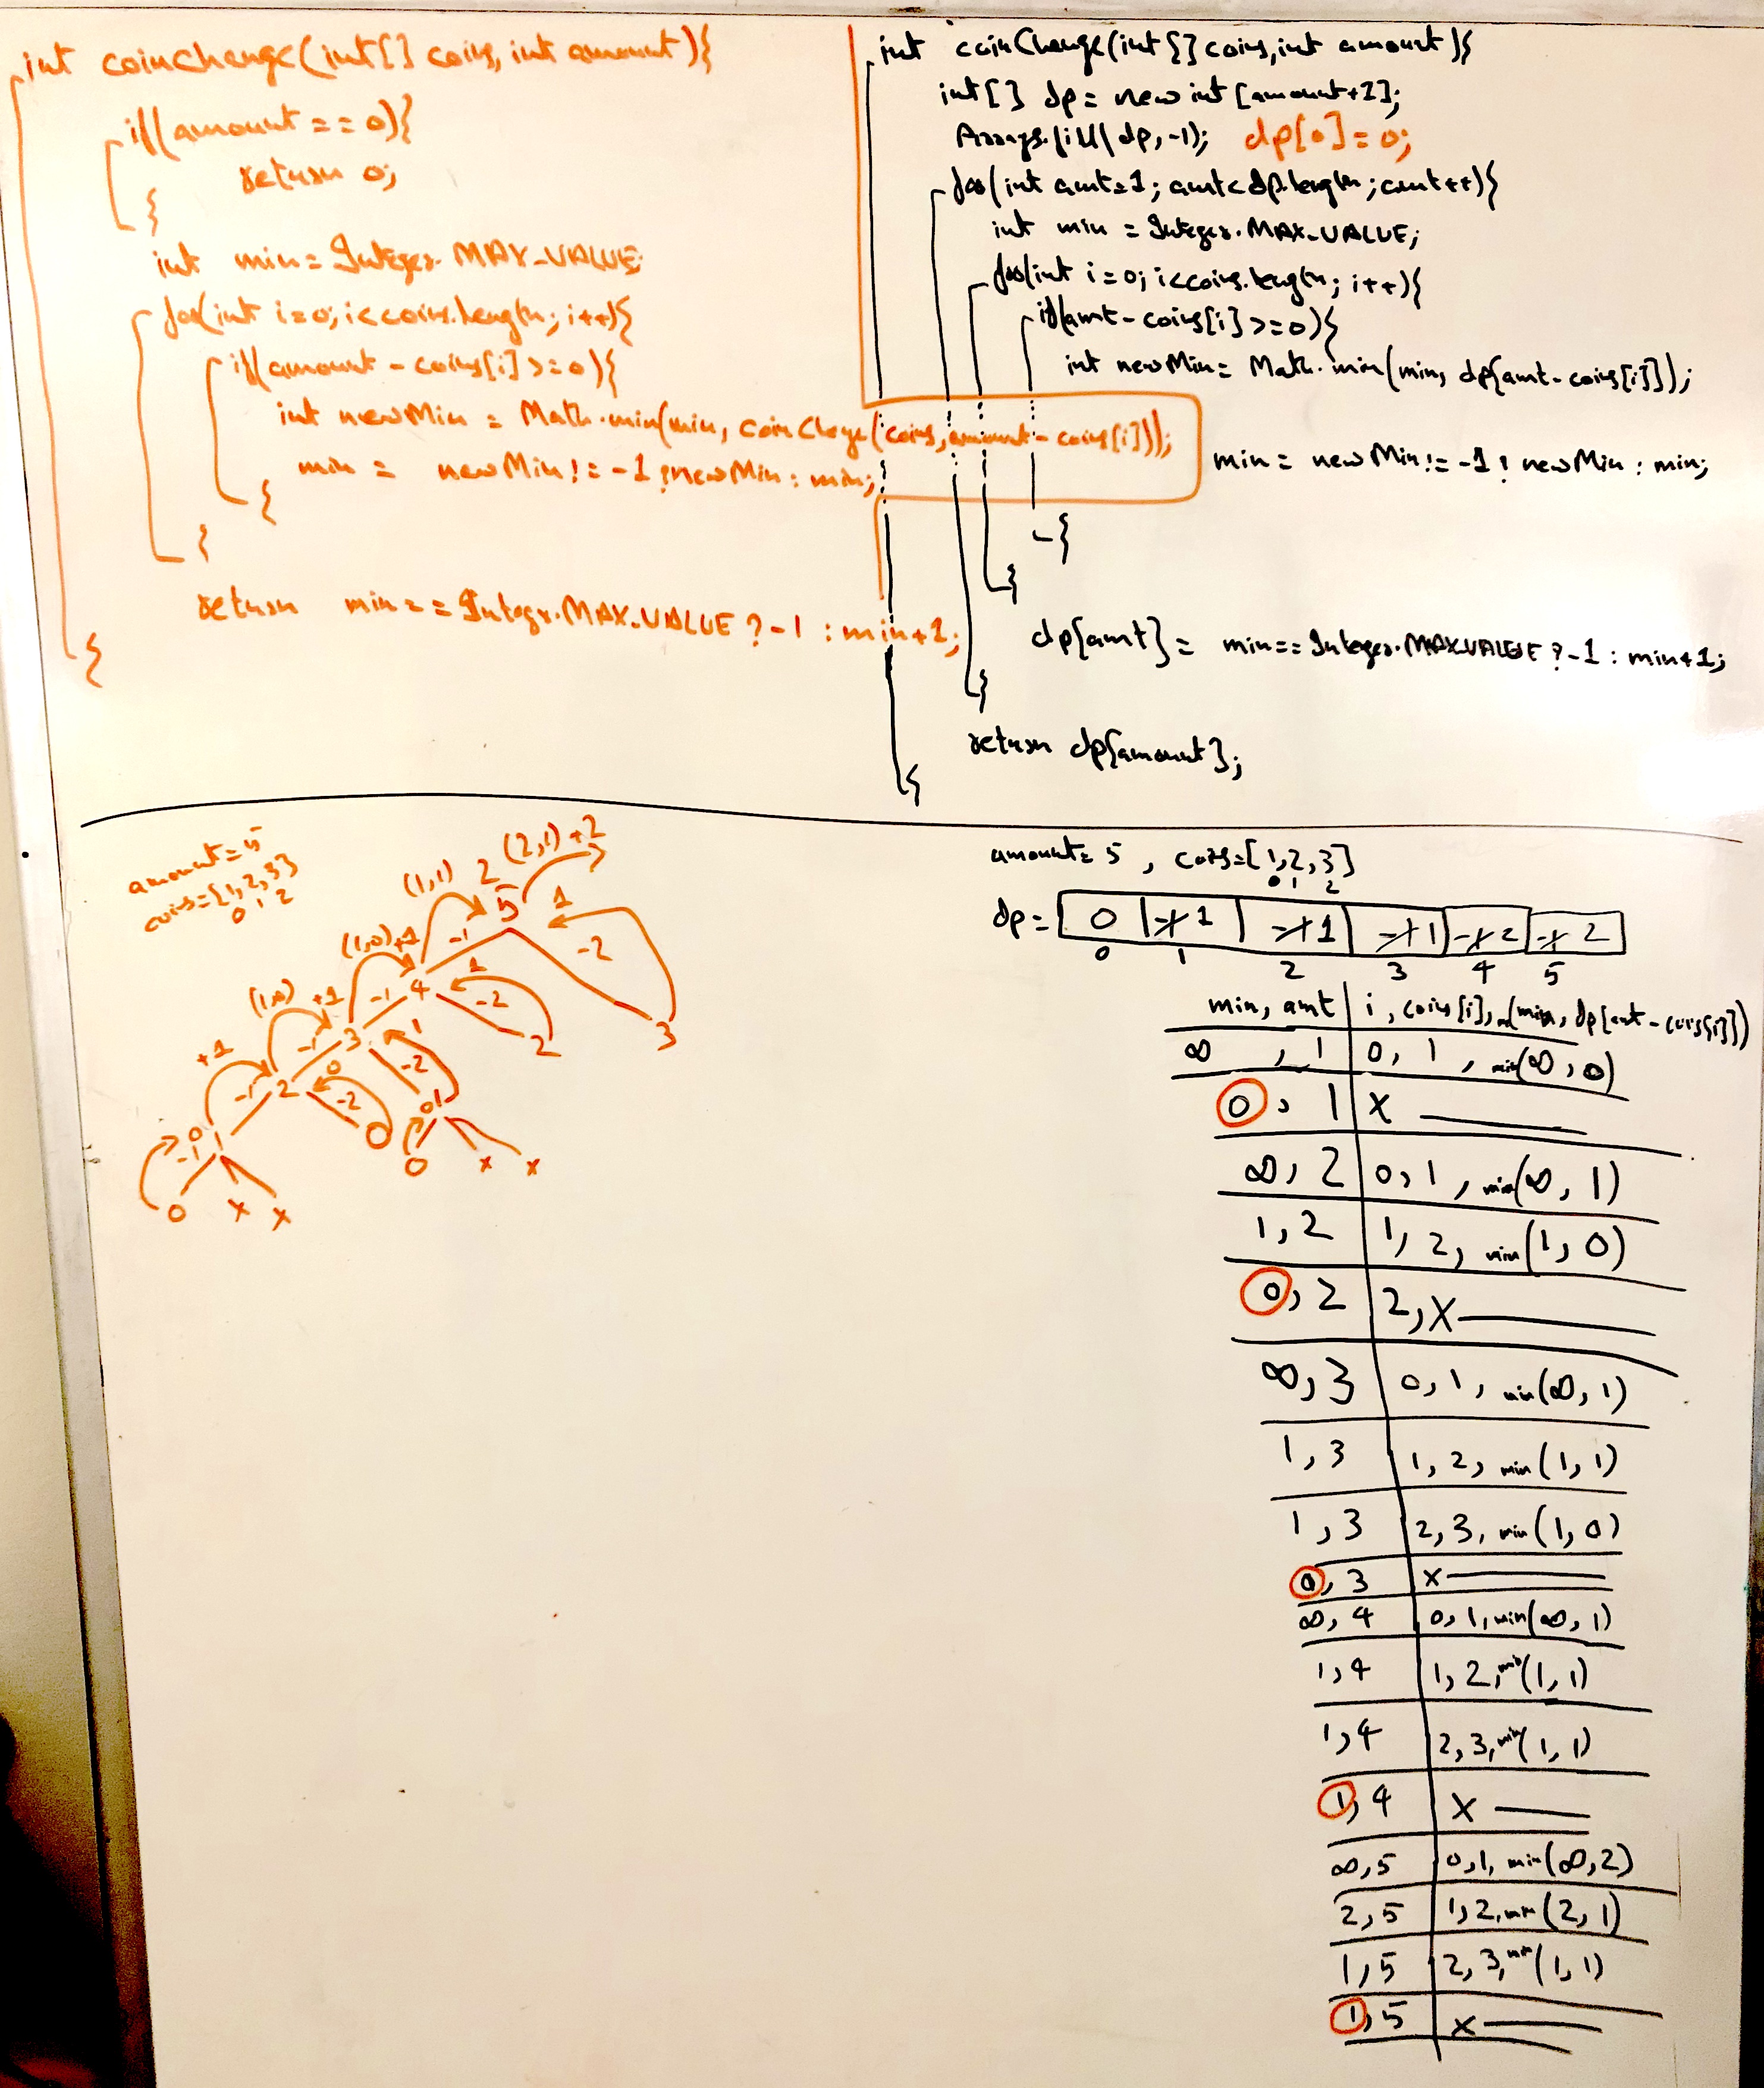 int coinchange(int[] coins, int amount){
if(amount == 0){
return 0;
}
int min = Integer.MAX_VALUE;
for(int i=0; i<coins.length; i++){
if(amount - coins[i] >= 0){
int newMin = Math.min(min, coinChange(coins, amount - coins[i]));
min = newMin != -1 ? newMin : min;
}
}
return min == Integer.MAX_VALUE ? -1 : min+1;
}
int coinChange(int[] coins, int amount){
int[] dp = new int[amount+1];
Arrays.fill(dp, -1); dp[0] = 0;
for(int amt=1; amt<dp.length; amt++){
int min = Integer.MAX_VALUE;
for(int i=0; i<coins.length; i++){
if(amt - coins[i] >= 0){
int newMin = Math.min(min, dp[amt - coins[i]]);
min = newMin != -1 ? newMin : min;
}
}
dp[amt] = min == Integer.MAX_VALUE ? -1 : min+1;
}
return dp[amount];
}
amount = 5
coins = {1,2,3}
0 1 2
(2,1) +2
(1,1) 2
5 1
-1 -2
(1,0) +1
4 1
-1 -2
3
(1,0) +1
3 1
-1 -2
2
+1
2 0
-1 -2
0
0 1
0
1
-1
0 x x
0 x x
amount = 5, coins = [1,2,3]
0 1 2
dp = 0 -1 1 -1 1 -1 1 -1 2 -1 2
0 1 2 3 4 5
min, amt | i, coins[i], m(min, dp[amt - coins[i]])
∞, 1 | 0, 1, min(∞, 0)
0, 1 | x
∞, 2 | 0, 1, min(∞, 1)
1, 2 | 1, 2, min(1, 0)
0, 2 | 2, x
∞, 3 | 0, 1, min(∞, 1)
1, 3 | 1, 2, min(1, 1)
1, 3 | 2, 3, min(1, 0)
0, 3 | x
∞, 4 | 0, 1, min(∞, 1)
1, 4 | 1, 2, min(1, 1)
1, 4 | 2, 3, min(1, 1)
1, 4 | x
∞, 5 | 0, 1, min(∞, 2)
2, 5 | 1, 2, min(2, 1)
1, 5 | 2, 3, min(1, 1)
1, 5 | x